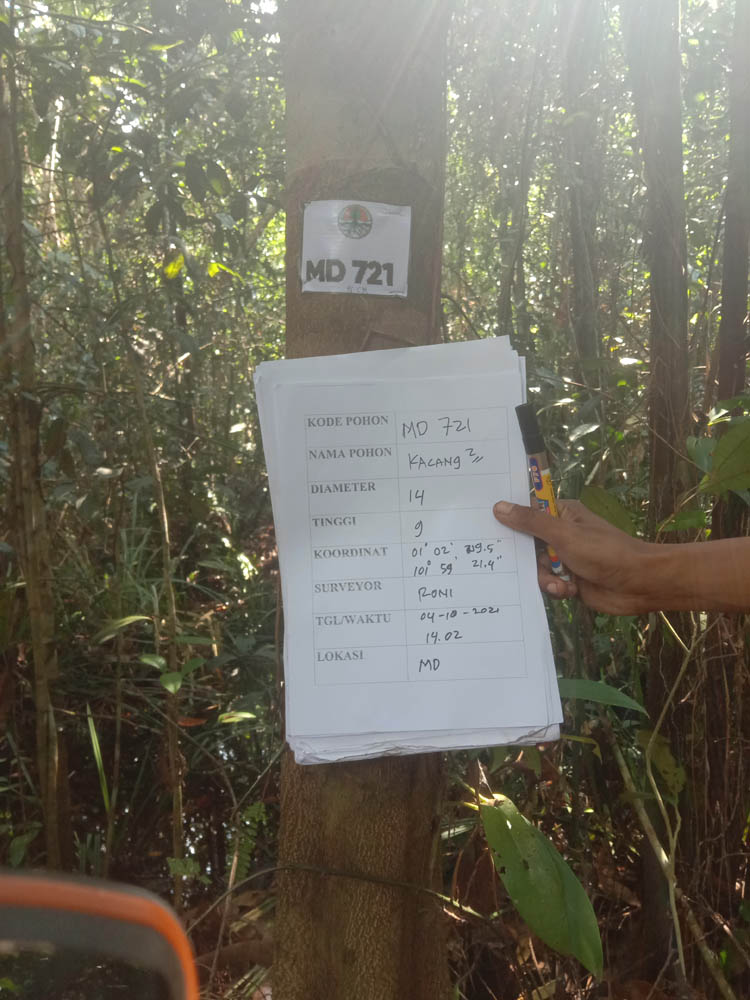 MD 721
KODE POHON MD 721
NAMA POHON KACANG 2 //
DIAMETER 14
TINGGI 9
KOORDINAT 01° 02' 39.5"
101° 59' 21.4"
SURVEYOR RONI
TGL/WAKTU 04-10-2021
14.02
LOKASI MD